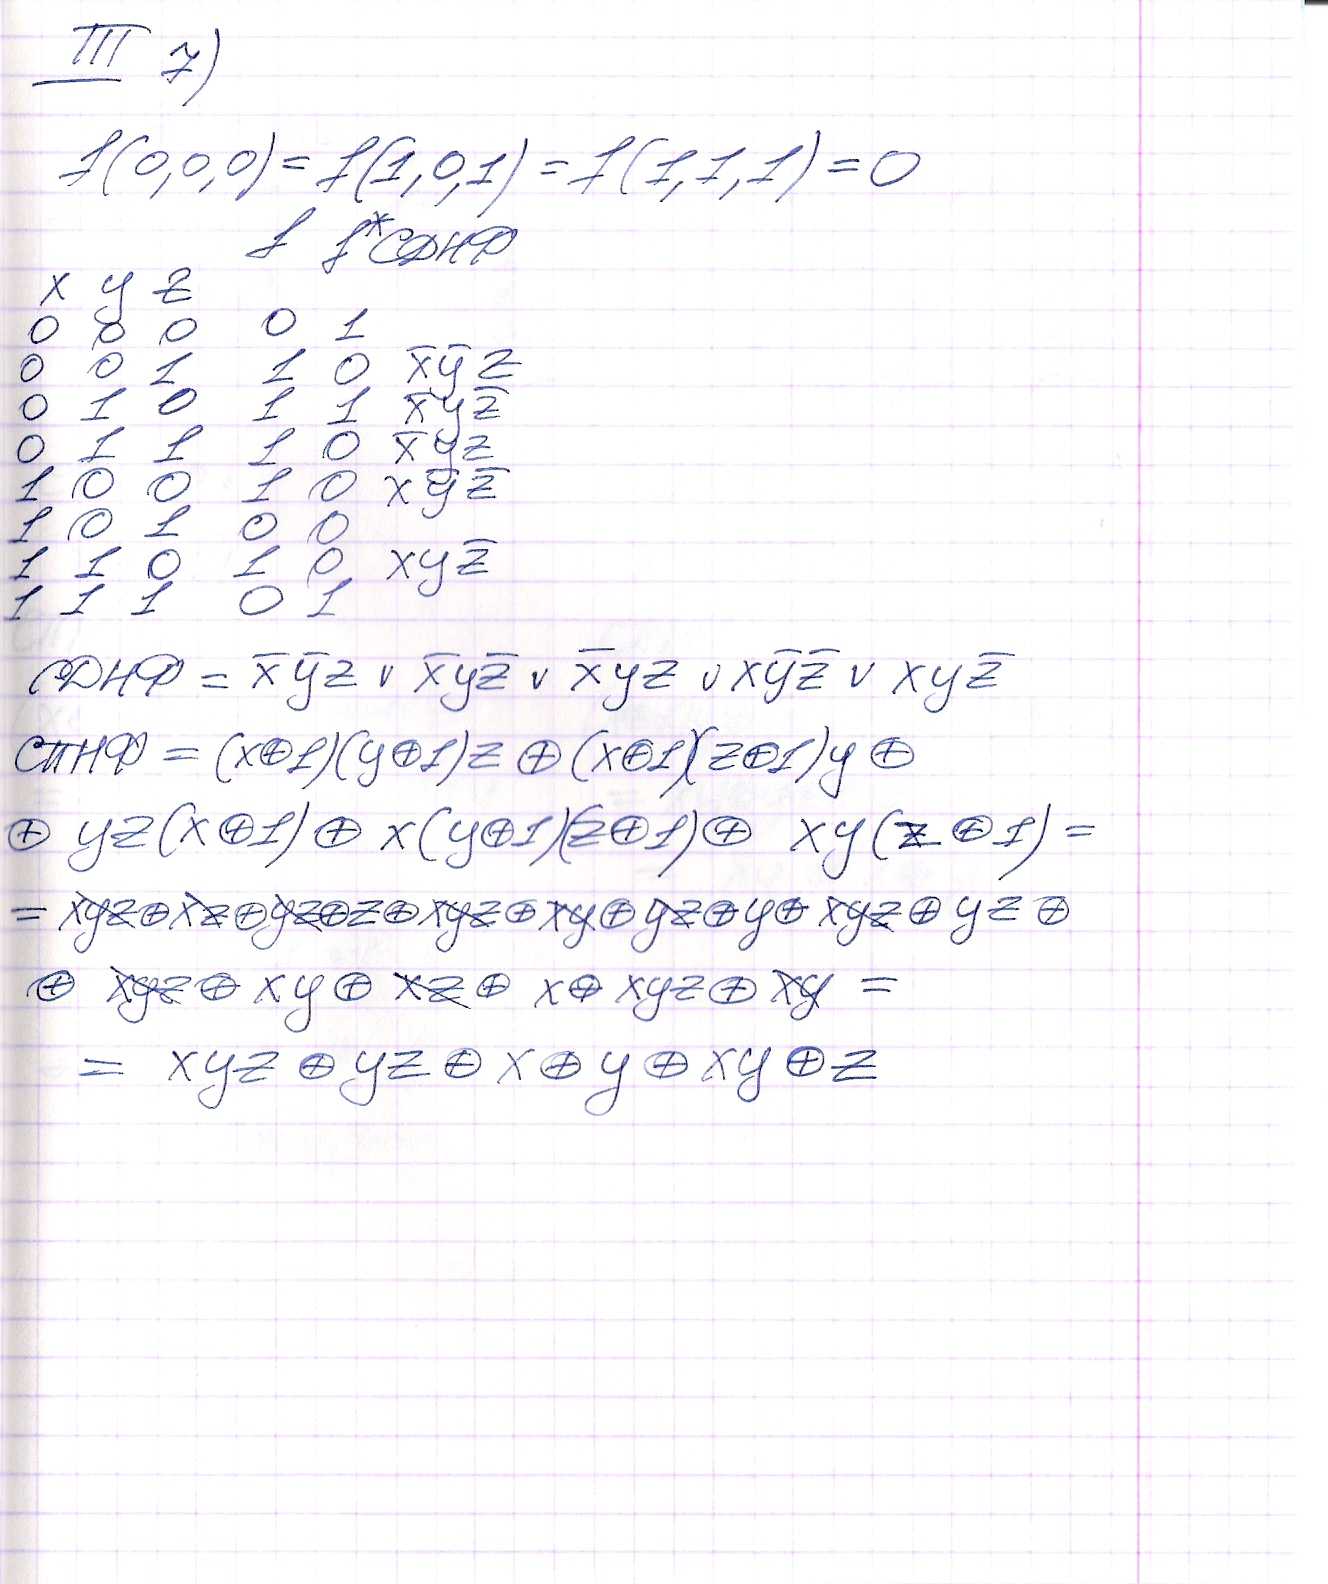 III 7)
f(0,0,0)=f(1,0,1)=f(1,1,1)=0
f f* СДНФ
x y z
0 0 0 0 1
0 0 1 1 0 x̄ȳz
0 1 0 1 1 x̄yz̄
0 1 1 1 0 x̄yz
1 0 0 1 0 xȳz̄
1 0 1 0 0
1 1 0 1 0 xyz̄
1 1 1 0 1
СДНФ = x̄ȳz v x̄yz̄ v x̄yz v xȳz̄ v xyz̄
СПНФ = (x⊕1)(y⊕1)z ⊕ (x⊕1)(z⊕1)y ⊕
⊕ yz(x⊕1) ⊕ x(y⊕1)(z⊕1) ⊕ xy(z⊕1) =
= xyz⊕xz⊕yz⊕z⊕xyz⊕xy⊕yz⊕y⊕xyz⊕yz⊕
⊕ xyz⊕xy⊕xz⊕x⊕xyz⊕xy =
= xyz⊕yz⊕x⊕y⊕xy⊕z